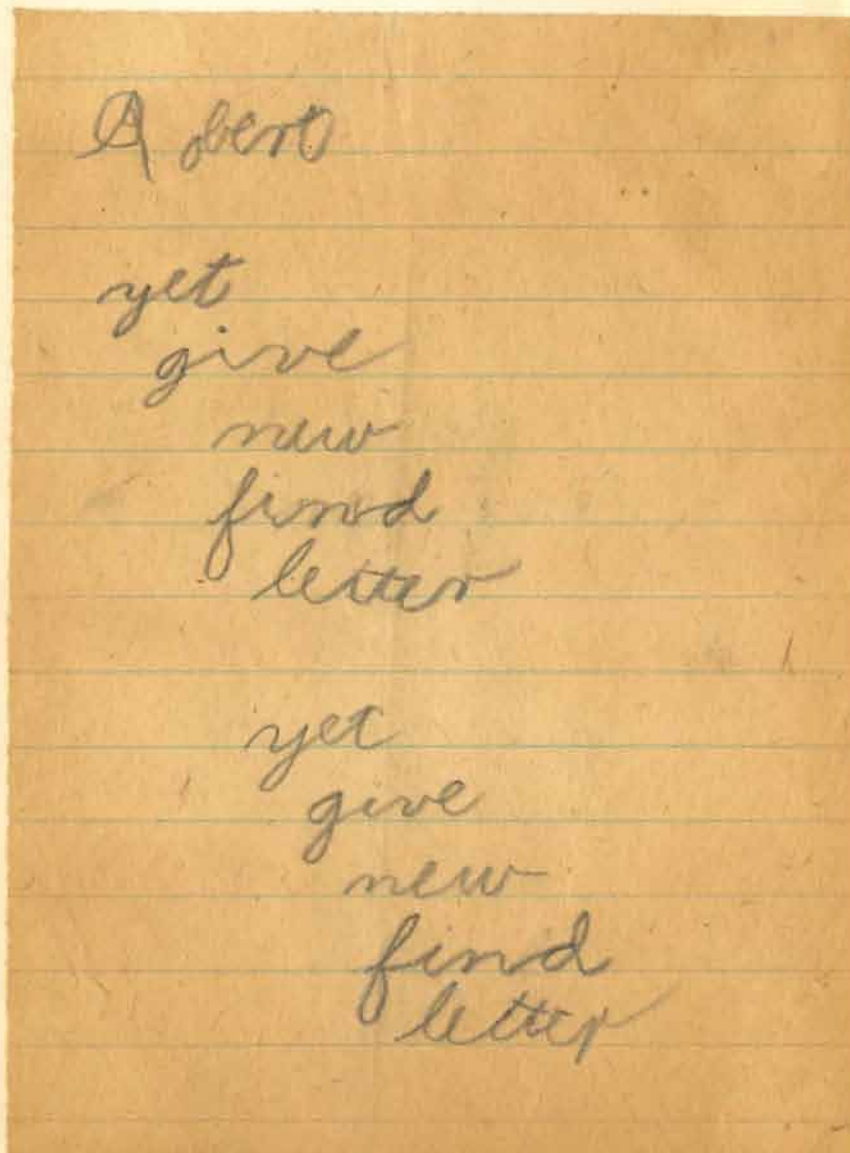 Robert
yet
give
new
find
letter
yet
give
new
find
letter